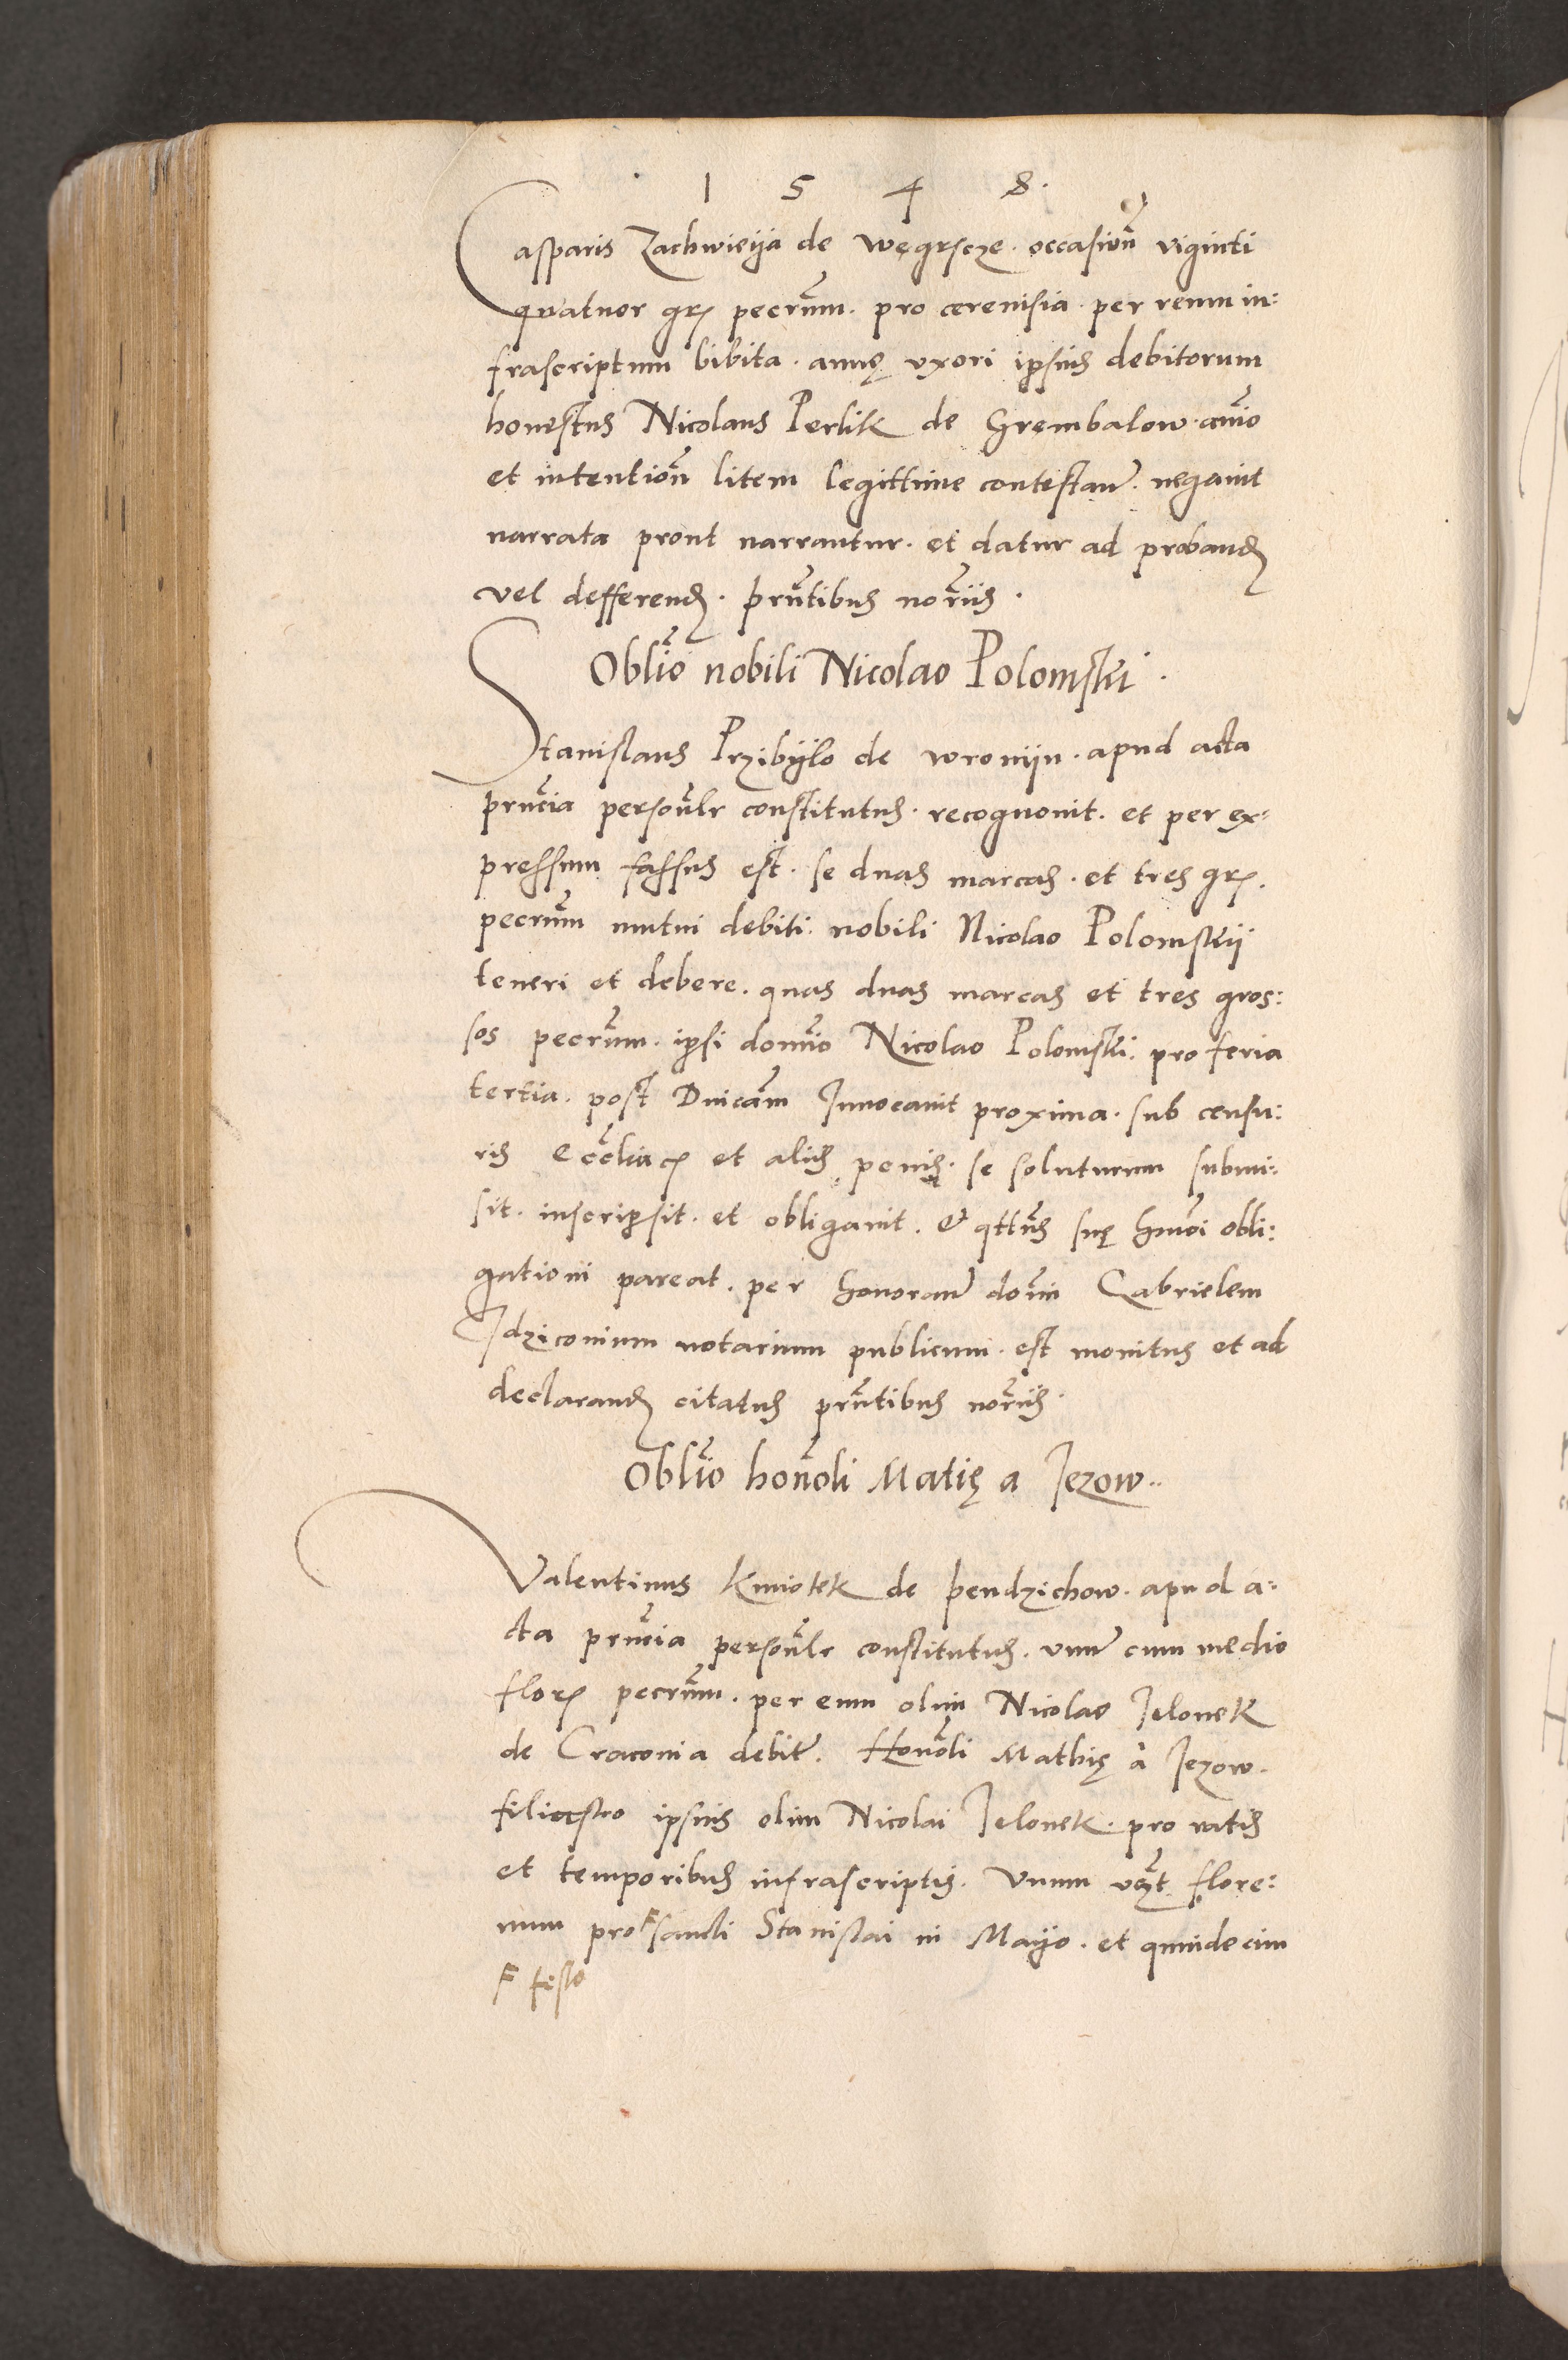 1 5 4 8.
Casparis Zachwieija de Węgrscze. occasioñ viginti
quatuor grꝭ pecrũm. pro cerevisia. per reum in:
frascriptum bibita. annę uxori ipsius debitorum
honestus Nicolaus Perlik de Grembalow. aĩo
et intentioñ litem legittime contestañ. negavit
narrata prout narrantur. et datur ad probanđ
vel defferenđ. prñtibus noriis.
Oblĩo nobili Nicolao Polomski.
Stanislaus Przibijlo de Wroniijn. apud acta
prñcia personlr constitutus. recognovit. et per ex:
pressum fassus est. se duas marcas. et tres grꝭ.
pecrũm mutui debiti. nobili Nicolao Polomskij
teneri et debere. quas duas marcas et tres gros:
sos pecrũm. ipsi domĩo Nicolao Polomski. pro feria
tertia. post Dnicam Invocavit proxima. sub censu:
ris Eccliacꝭ et aliis penis. se soluturum submi:
sit. inscripsit. et obligavit. & qttñs suę hmõi obli:
gationi pareat. per honorañ domi Gabrielem
Idziconium notarium publicum. est monitus et ad
declaranđ citatus prñtibus noriis.
Oblĩo honõli Matię a Jezow..
Valentinus Kmiotek de Pendzichow. apud a:
cta prñcia personlr constitutus. unũ cum medio
florꝭ pecrũm. per eum olim Nicolao Jelonek
de Cracovia debitũ. Honõli Mathię à Jezow.
filiastro ipsius olim Nicolai Jelonek. pro ratis
et temporibus infrascriptis. Unum vczt flore:
num pro F sancti Stanislai in Mayo. et quindecim
F festo